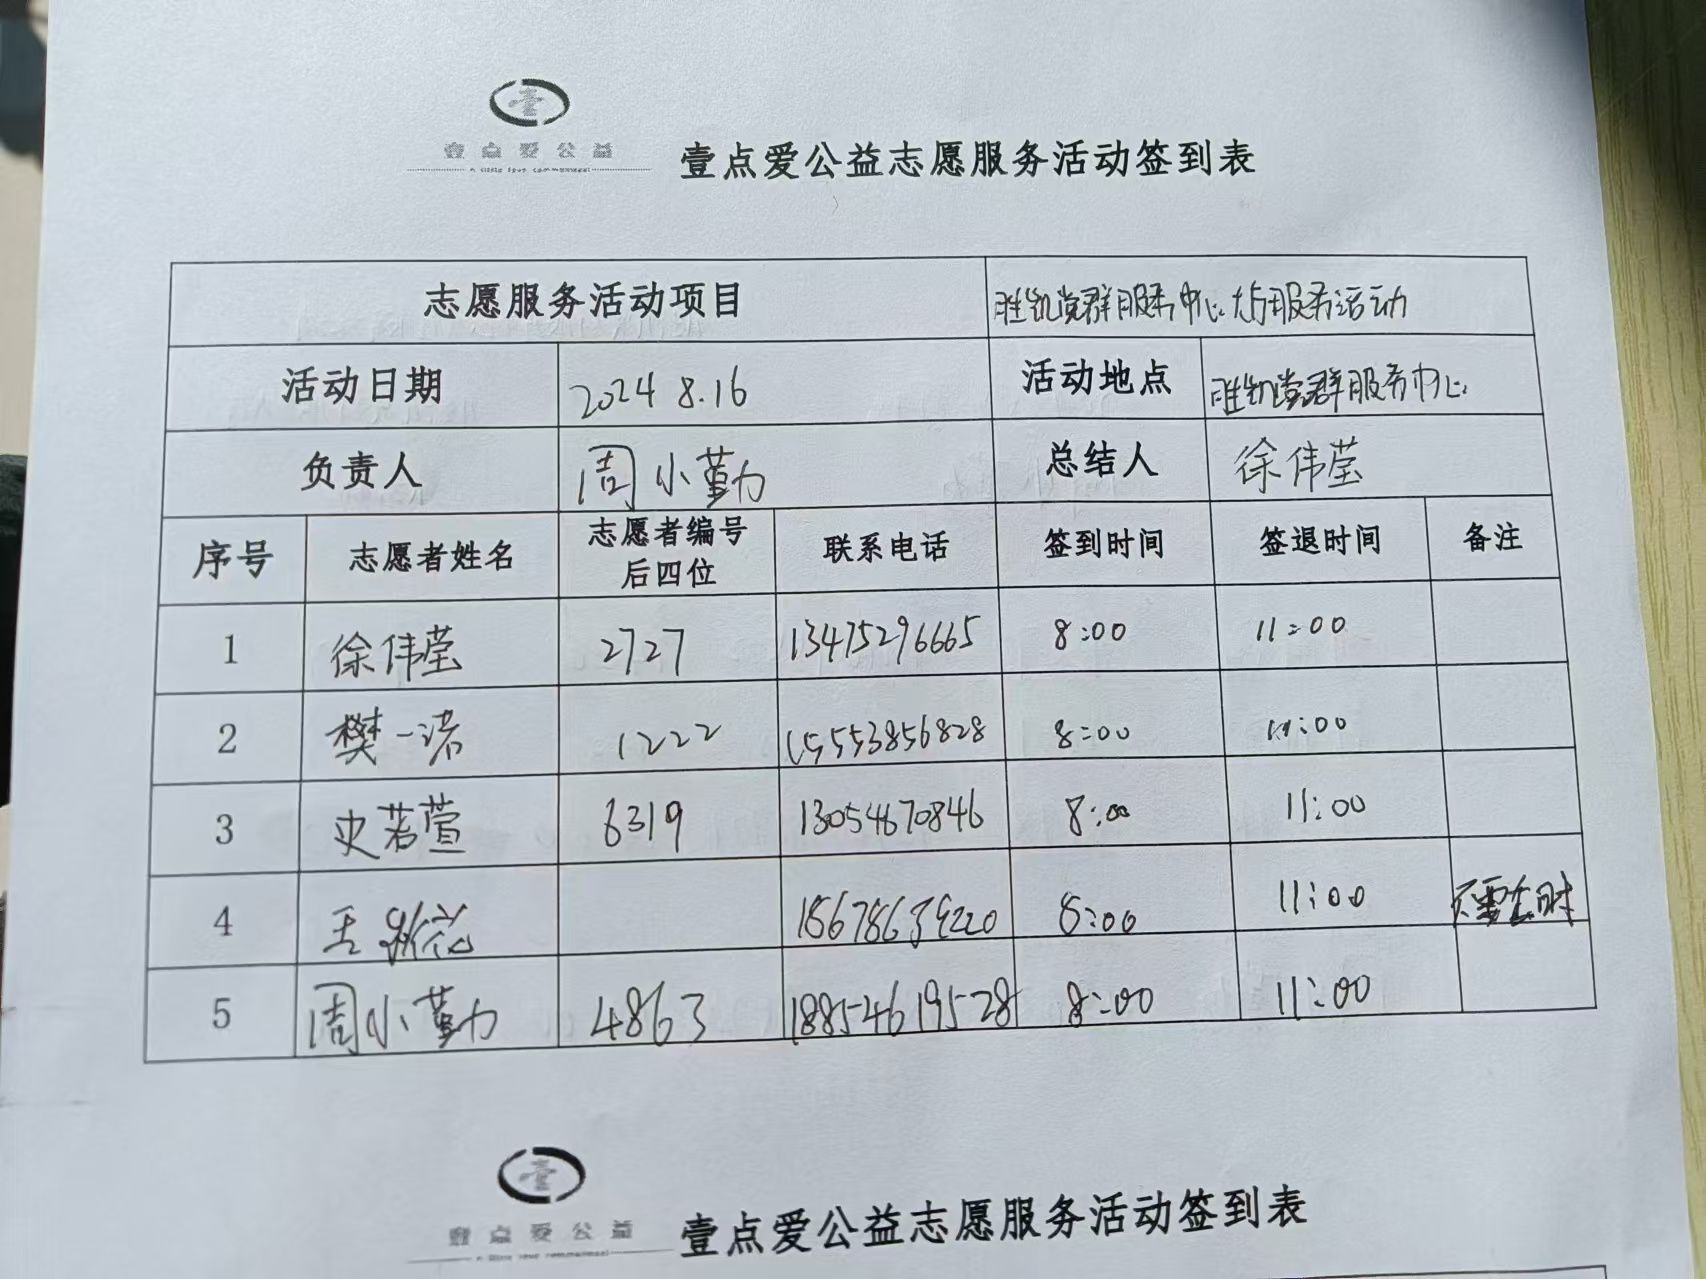 壹
壹点爱公益
壹点爱公益志愿服务活动签到表
志愿服务活动项目 胜凯党群服务中心大厅服务活动
活动日期 2024 8.16 活动地点 胜凯党群服务中心
负责人 周小勤 总结人 徐伟莹
序号 志愿者姓名 志愿者编号后四位 联系电话 签到时间 签退时间 备注
1 徐伟莹 2727 13475296665 8:00 11:00
2 樊一诺 1222 15553856828 8:00 11:00
3 史若萱 6319 13054670846 8:00 11:00
4 王 8:00 11:00 不需要时
5 周小勤 4863 18854619528 8:00 11:00
壹
壹点爱公益
壹点爱公益志愿服务活动签到表